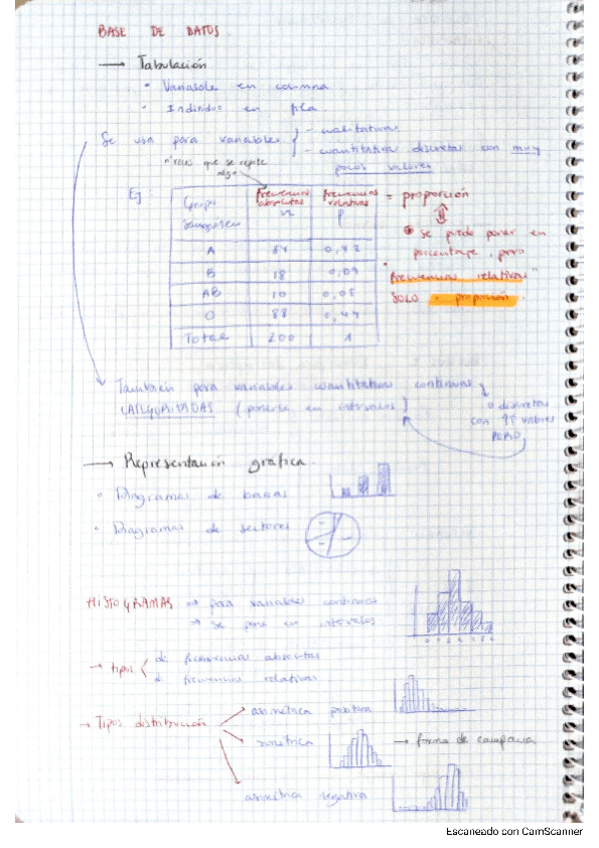 BASE DE DATOS
→ Tabulación
• Variable en columna
• Individuo en fila
Se usa para variables
- cualitativas
- cuantitativa discretas con muy
pocos valores
nº veces que se repite
algo
Ej:
Grupo
sanguíneo
Frecuencias
absolutas
n
Frecuencias
relativas
P
= proporción
A 84 0,42
B 18 0,09
AB 10 0,05
O 88 0,44
Total 200 1
se puede poner en
porcentaje, pero
"frecuencias relativas"
SOLO = proporción
También para variables cuantitativas continuas
CATEGORIZADAS (ponerla en intervalos)
o discretas
con valores
→ Representación gráfica
• Diagramas de barras
• Diagramas de sectores
HISTOGRAMAS → para variables continuas
→ se pone en intervalos
→ tipos
de frecuencias absolutas
frecuencias relativas
→ Tipos distribución
asimétrica positiva
simétrica → forma de campana
asimétrica negativa
Escaneado con CamScanner